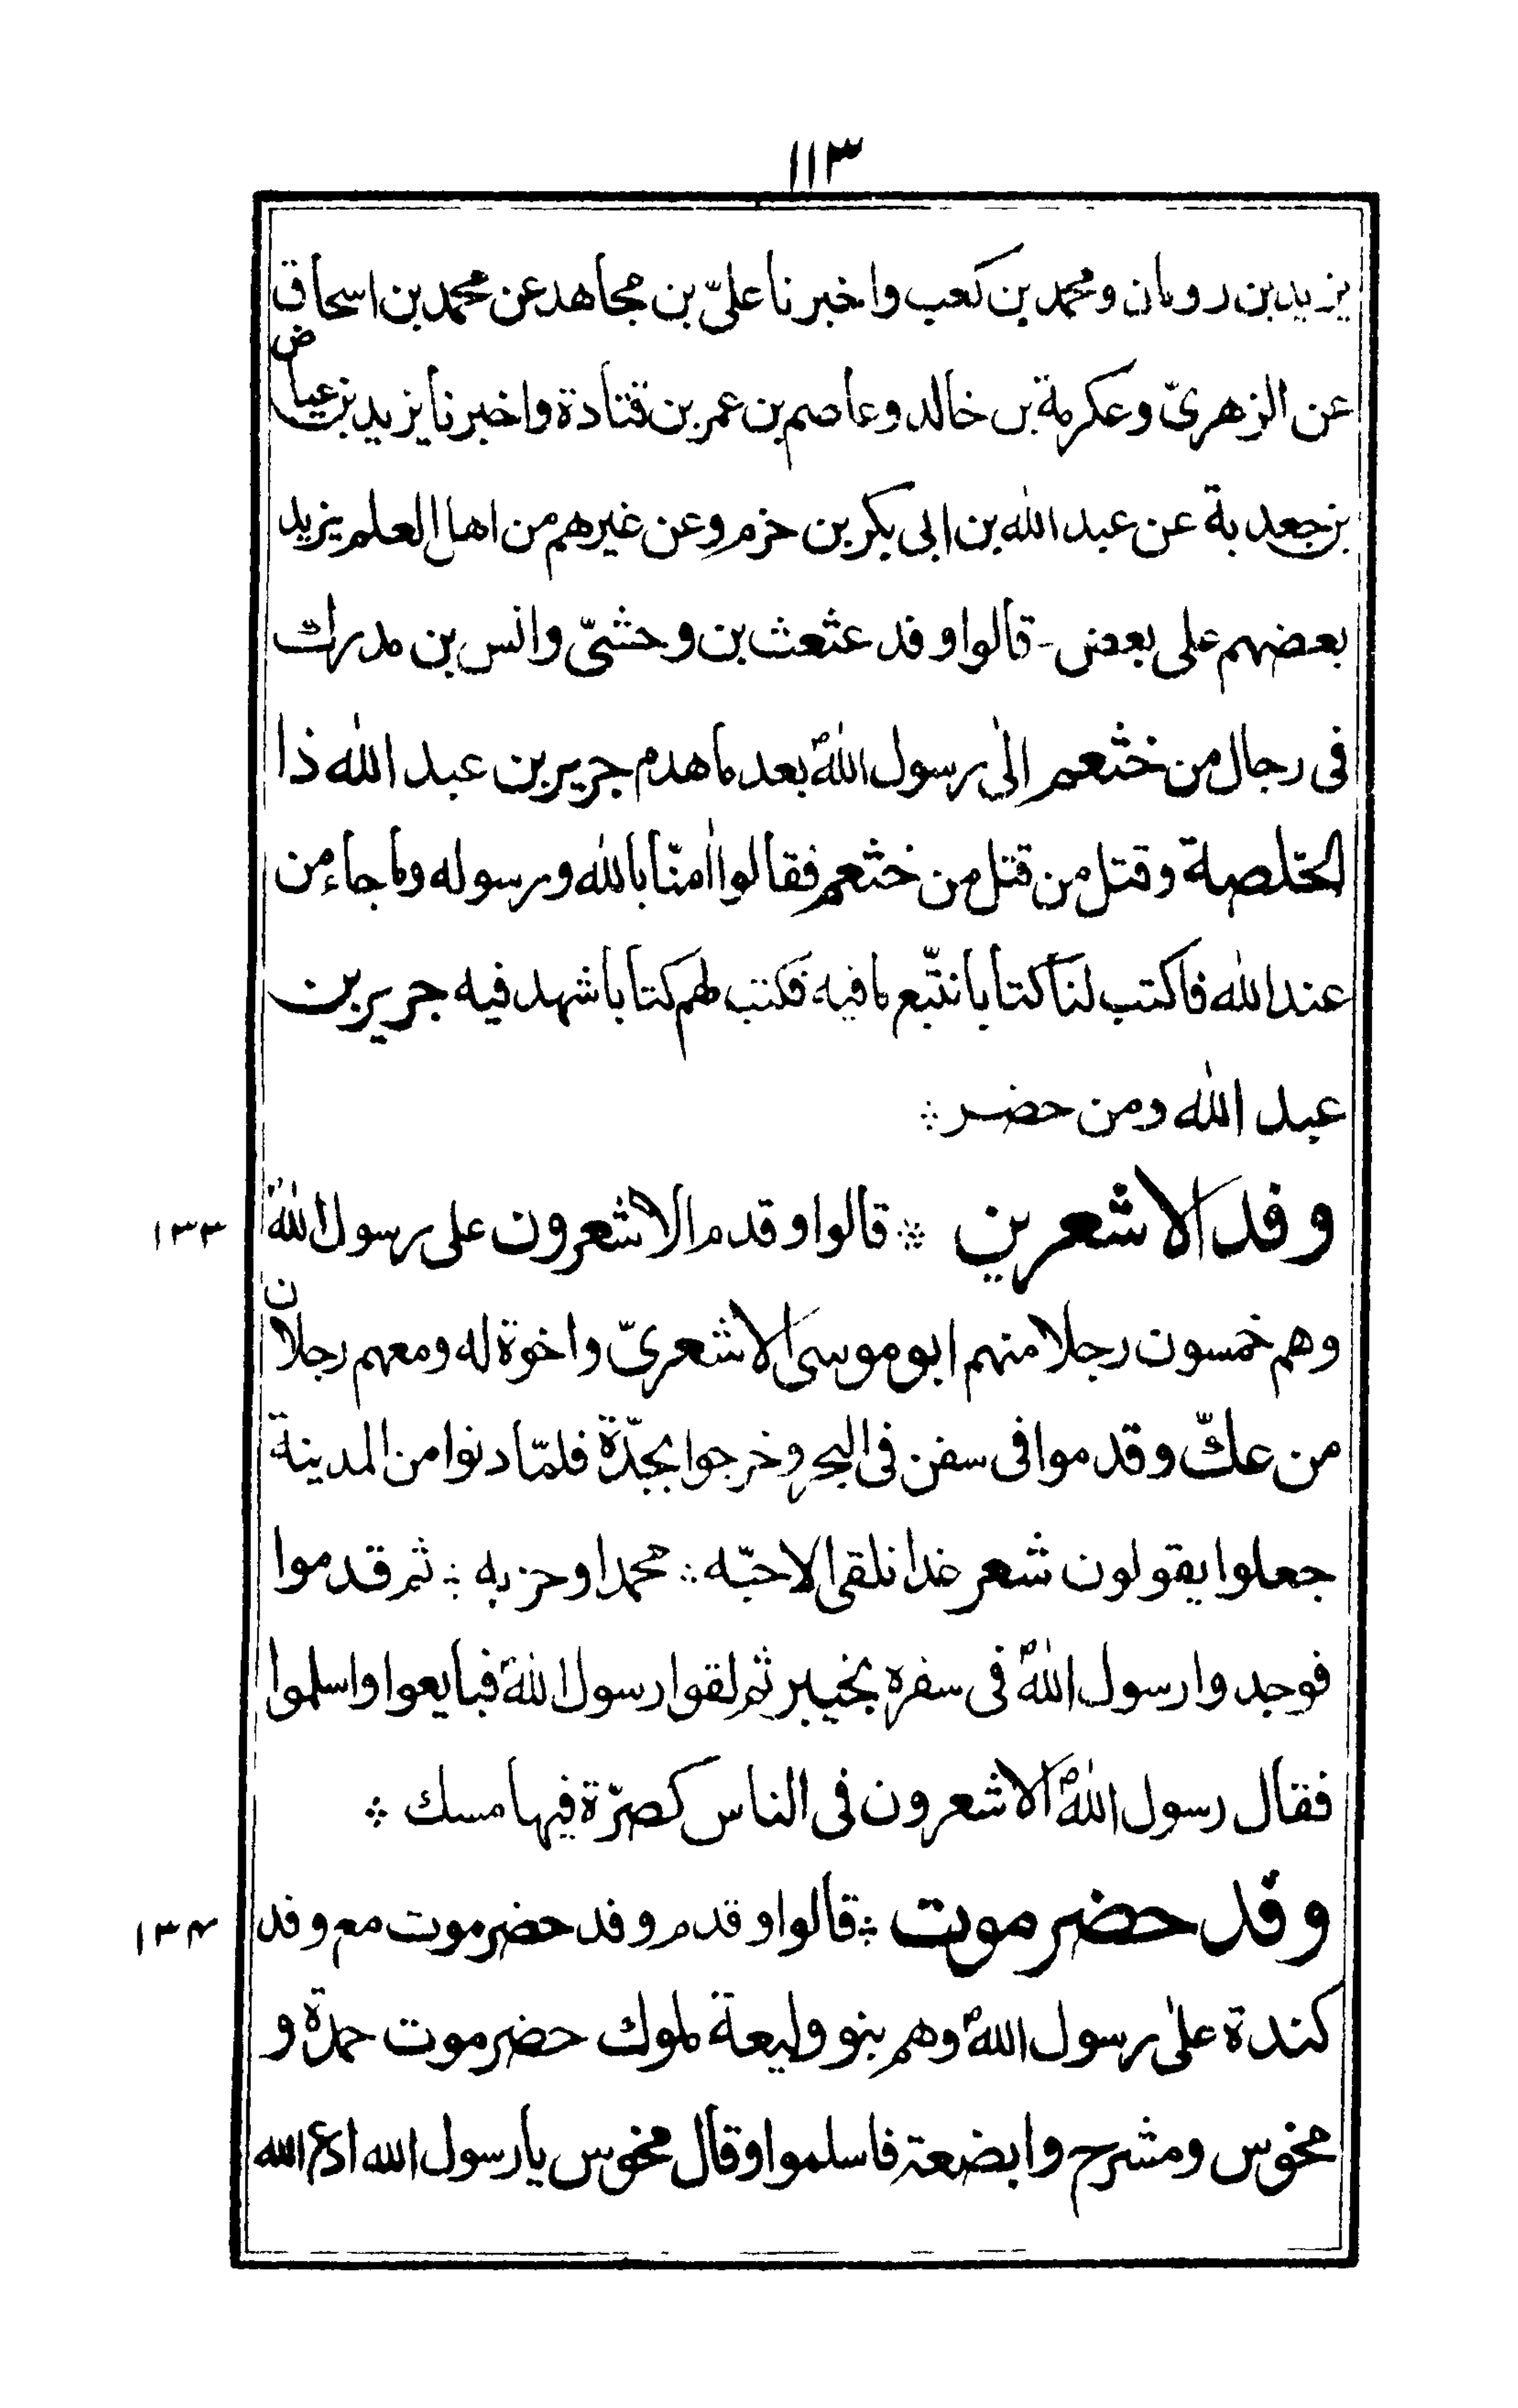 ١١٣
يزيد بن رومان ومحمد بن كعب واخبرنا علىّ بن مجاهد عن محمد بن اسحاق
عن الزهرىّ وعكرمة بن خالد وعاصم بن عمر بن قتادة واخبرنا يزيد بن عياض
بن جعدبة عن عبد الله بن ابى بكر بن حزم وعن غيرهم من اهل العلم يزيد
بعضهم على بعض - قالوا وفد عثعث بن وحشىّ وانس بن مدرك
فى رجال من خثعم الى رسول اللهؐ بعد ما هدم جرير بن عبد الله ذا
الخلصة وقتل من قتل من خثعم فقالوا اٰمنّا بالله ورسوله وما جاء من
عند الله فاكتب لنا كتابا نتّبع ما فيه فكتب لهم كتابا شهد فيه جرير بن
عبد الله ومن حضر ⁘
وفد الاشعرين ⁘ قالوا وقدم الاشعرون على رسول اللهؐ ١٣٣
وهم خمسون رجلا منهم ابو موسى الاشعرىّ واخوة له ومعهم رجلان
من عكّ وقدموا فى سفن فى البحر وخرجوا بجدّة فلمّا دنوا من المدينة
جعلوا يقولون شعر غدا نلقى الاحبّه ⁘ محمدا وحزبه ⁘ ثم قدموا
فوجدوا رسول اللهؐ فى سفره بخيبر ثم لقوا رسول اللهؐ فبايعوا واسلموا
فقال رسول اللهؐ الاشعرون فى الناس كصرّة فيها مسك ⁘
وفد حضرموت ⁘ قالوا وقدم وفد حضرموت مع وفد ١٣۴
كندة على رسول اللهؐ وهم بنو وليعة ملوك حضرموت حمدة و
مخوس ومشرح وابضعة فاسلموا وقال مخوس يا رسول الله ادع الله